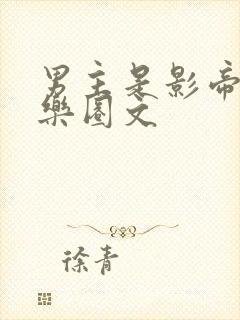 男主是影帝
樂圈文
徐青